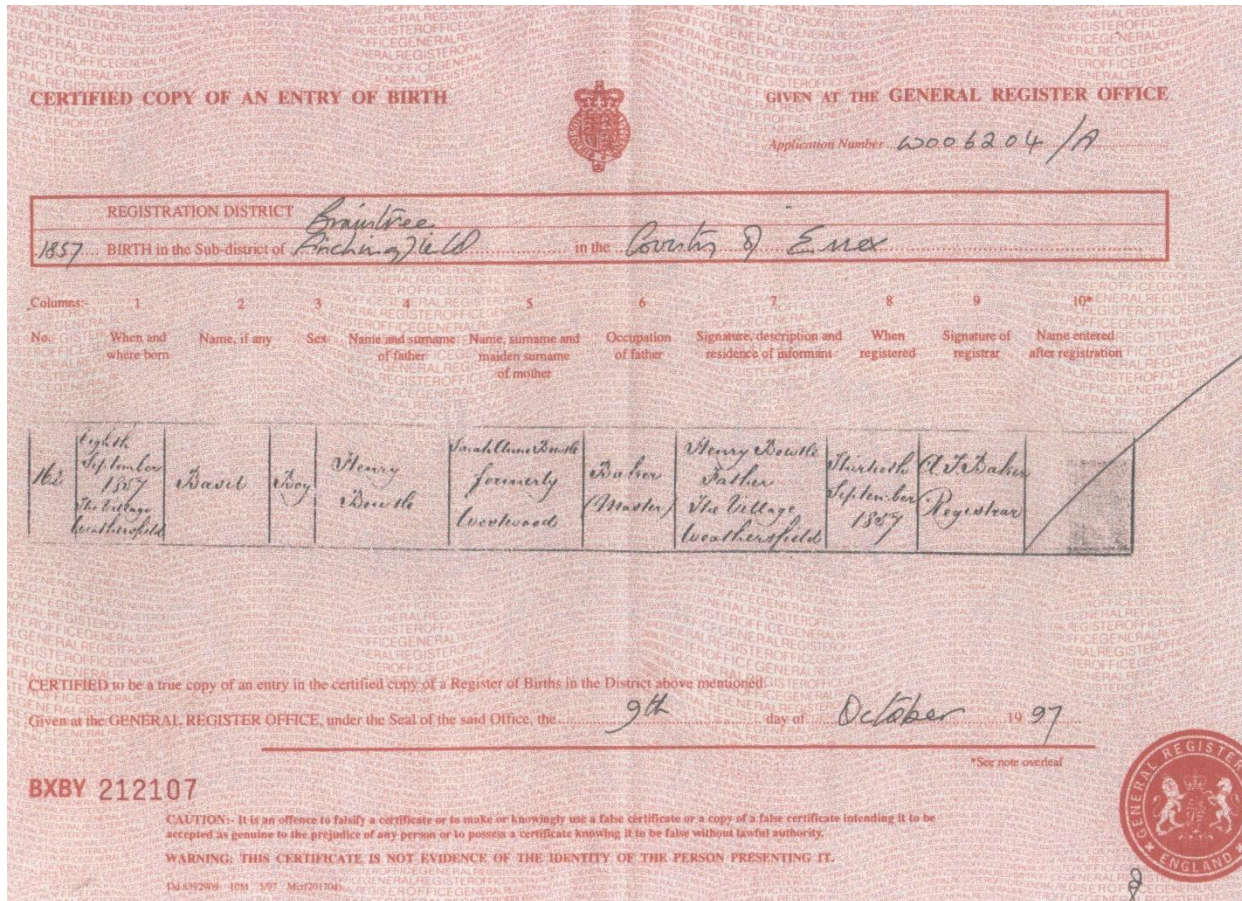 CERTIFIED COPY OF AN ENTRY OF BIRTH
GIVEN AT THE GENERAL REGISTER OFFICE
Application Number W006204/A
REGISTRATION DISTRICT Braintree
1857 BIRTH in the Sub-district of Finchingfield in the County of Essex
Columns:- 1 2 3 4 5 6 7 8 9 10*
No. When and where born Name, if any Sex Name and surname of father Name, surname and maiden surname of mother Occupation of father Signature, description and residence of informant When registered Signature of registrar Name entered after registration
162
Eighth
September
1857
The Village
Weathersfield
Basil
Boy
Henry
Bowtle
Sarah Anne Bowtle
formerly
Westwood
Baker
(Master)
Henry Bowtle
Father
The Village
Weathersfield
Thirtieth
September
1857
Baker
Registrar
CERTIFIED to be a true copy of an entry in the certified copy of a Register of Births in the District above mentioned.
Given at the GENERAL REGISTER OFFICE, under the Seal of the said Office, the 9th day of October 19 97
*See note overleaf
BXBY 212107
CAUTION:- It is an offence to falsify a certificate or to make or knowingly use a false certificate or a copy of a false certificate intending it to be
accepted as genuine to the prejudice of any person or to possess a certificate knowing it to be false without lawful authority.
WARNING: THIS CERTIFICATE IS NOT EVIDENCE OF THE IDENTITY OF THE PERSON PRESENTING IT.
GENERAL REGISTER
ENGLAND